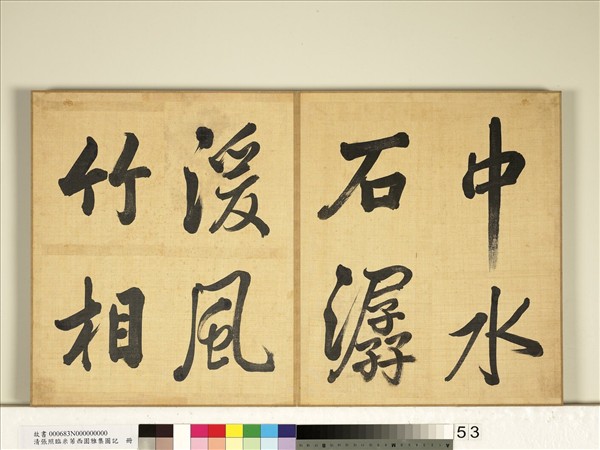 中水
石潺
湲風
竹相
故書000683N000000000
清張照臨米芾西園雅集圖記 冊
53